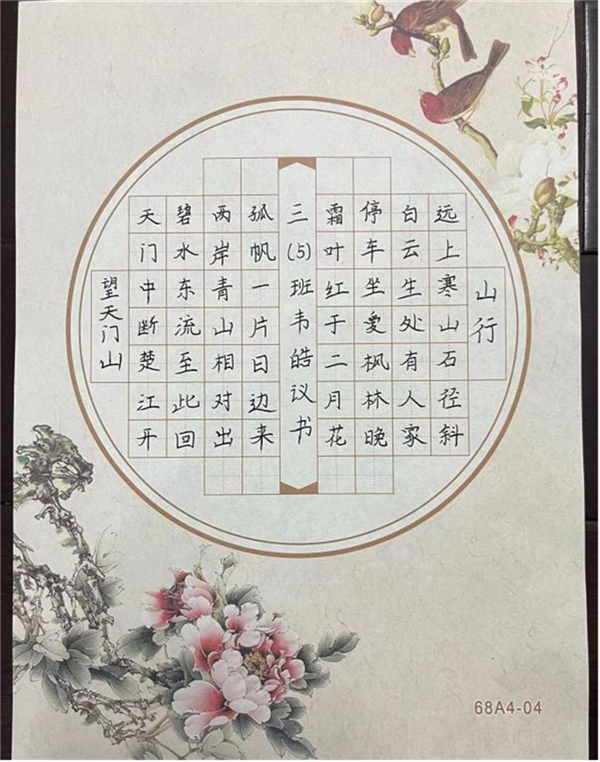 山行
远上寒山石径斜
白云生处有人家
停车坐爱枫林晚
霜叶红于二月花
望天门山
天门中断楚江开
碧水东流至此回
两岸青山相对出
孤帆一片日边来
三(5)班韦皓议书
68A4-04